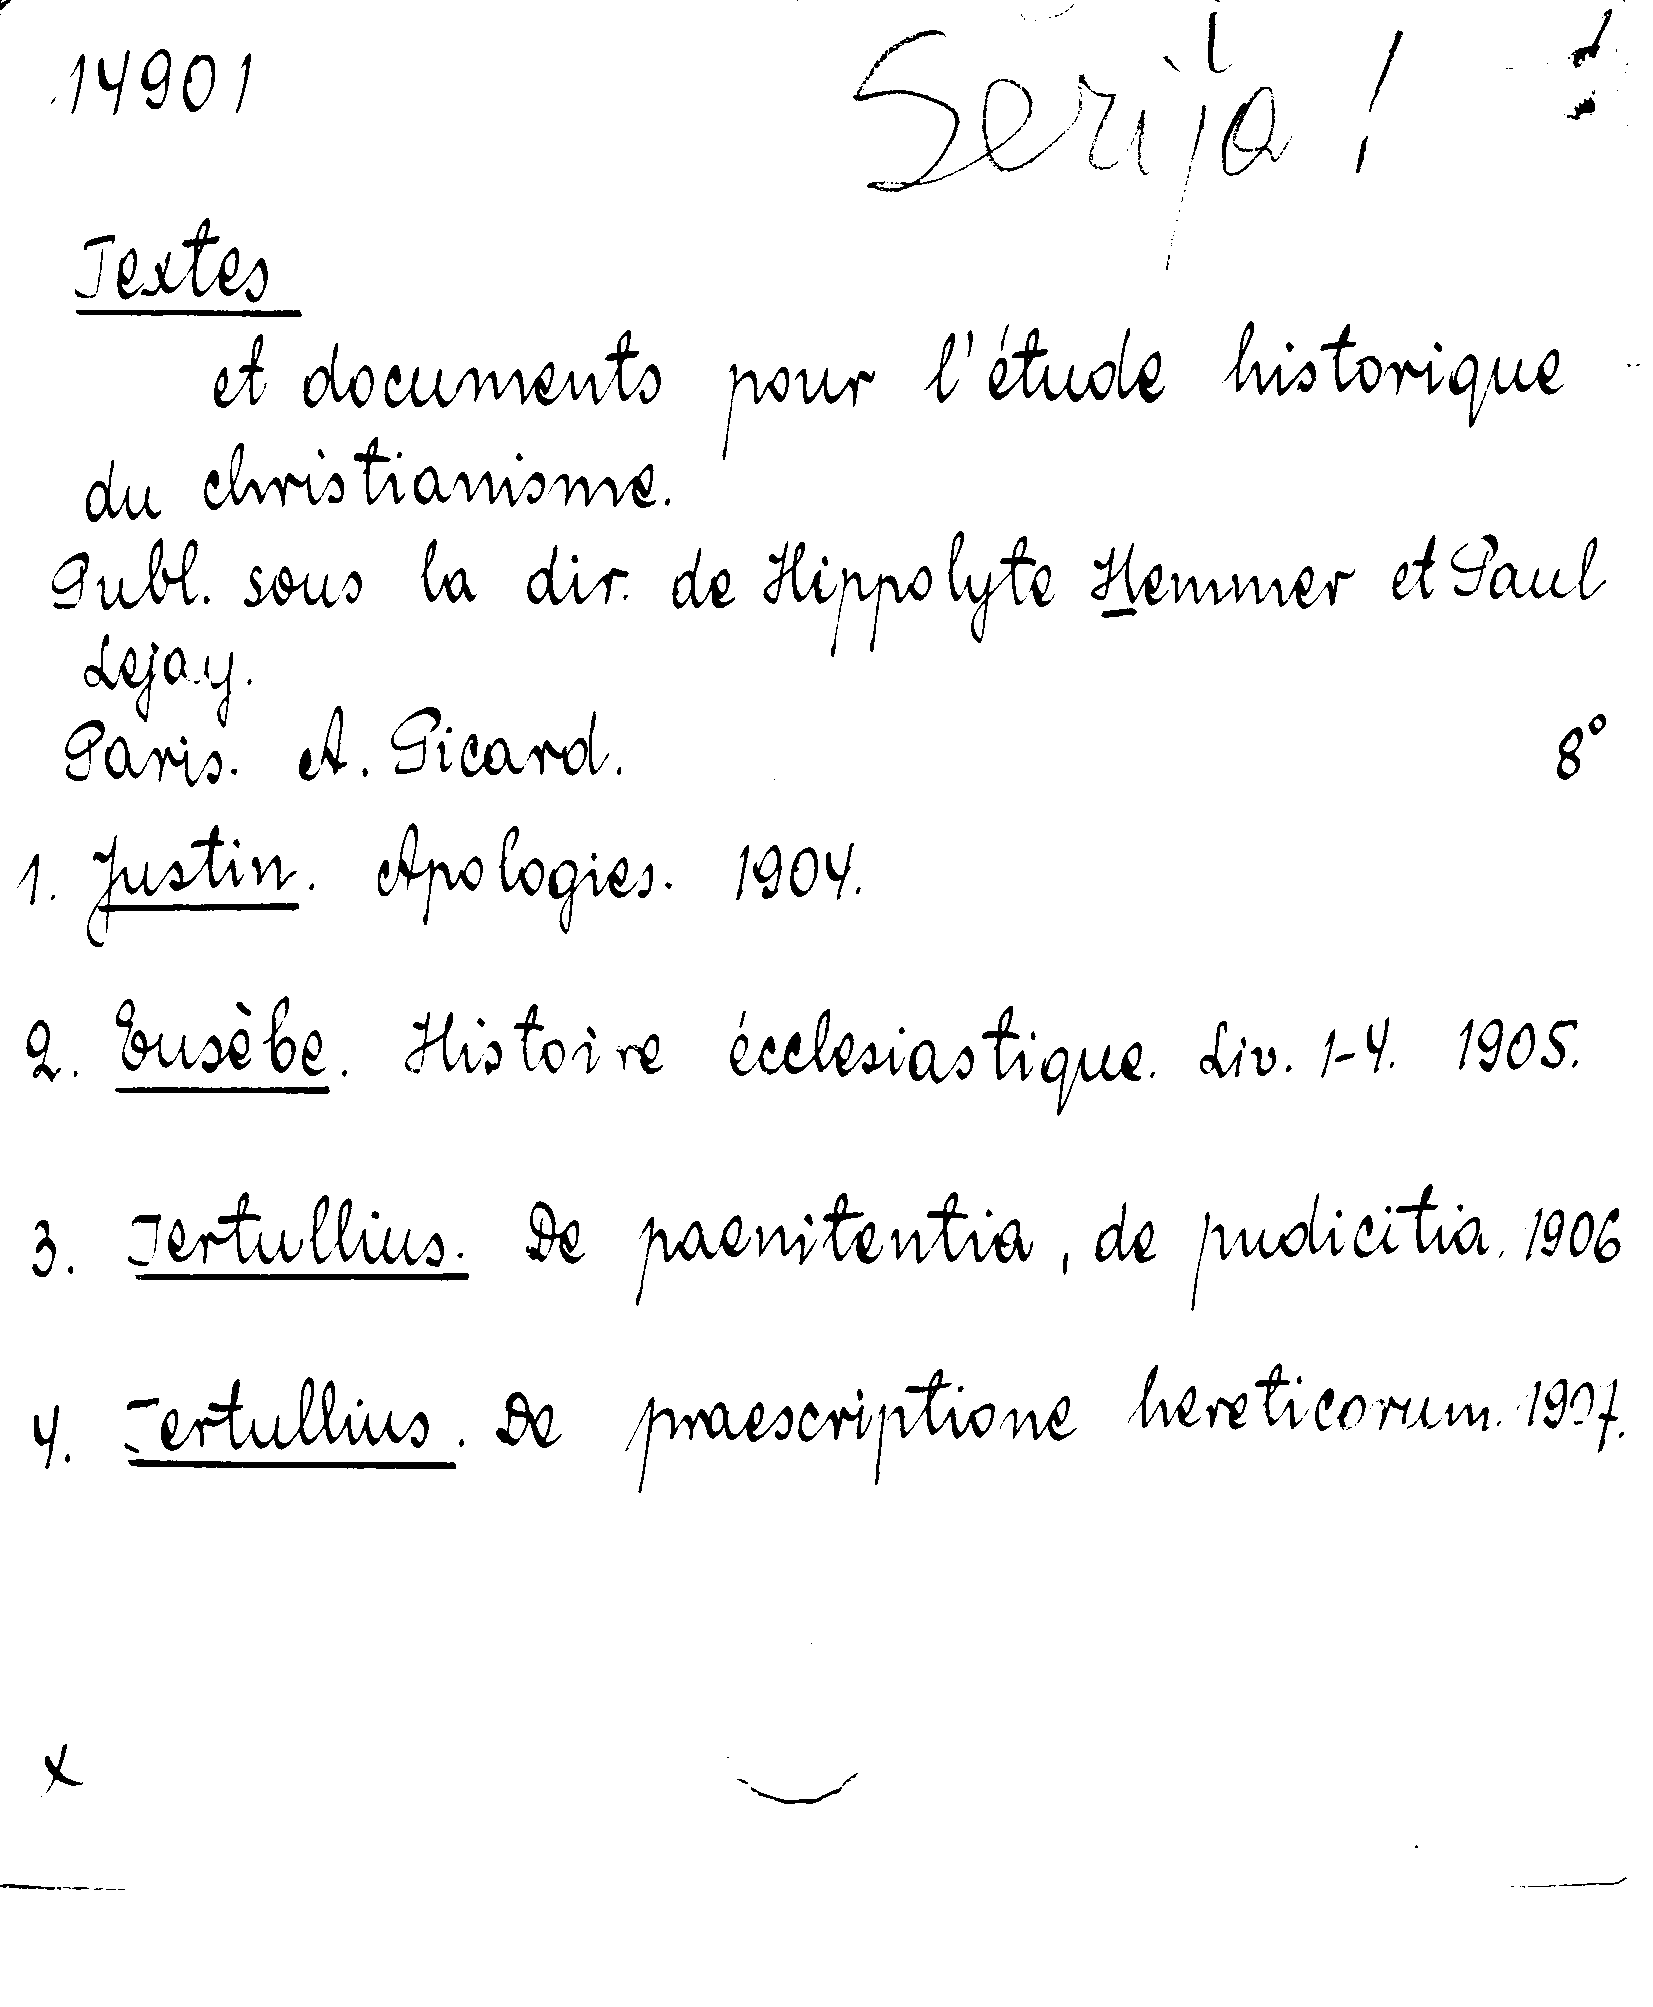 14901
Serija!
Textes
et documents pour l'étude historique
du christianisme.
Publ. sous la dir. de Hippolyte Hemmer et Paul
Lejay.
Paris. A. Picard. 8°
1. Justin. Apologies. 1904.
2. Eusèbe. Histoire écclesiastique. Liv. 1-4. 1905.
3. Tertullius. De paenitentia, de pudicitia. 1906
4. Tertullius. De praescriptione hereticorum. 1907.
x